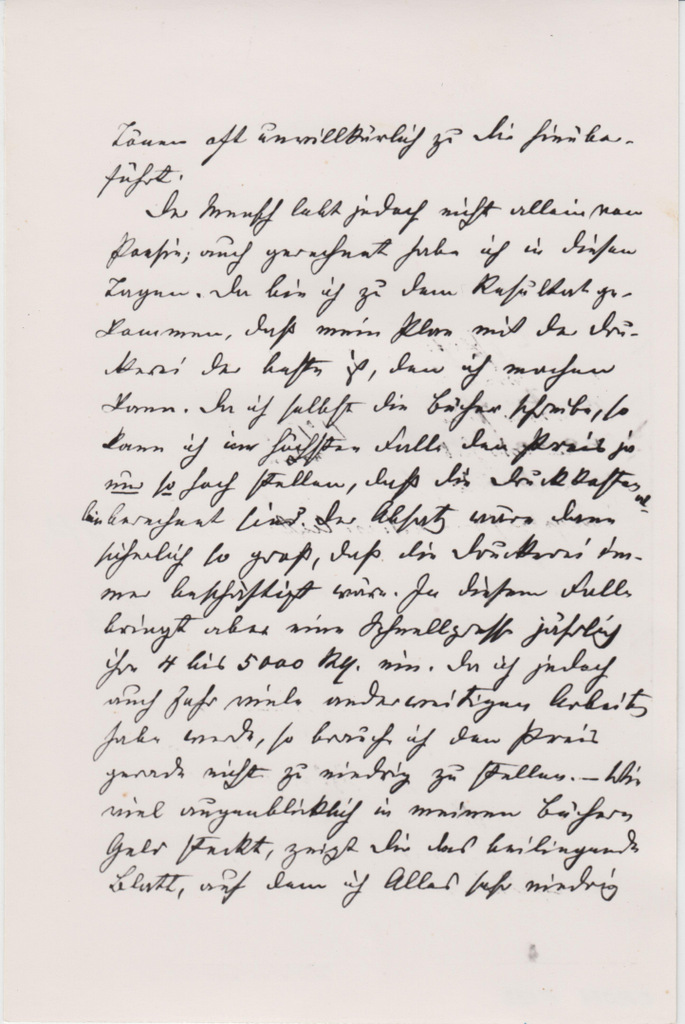 Tönen oft unwillkürlich zu dir hinüber-
führt.
Der Mensch lebt jedoch nicht allein von
Poesie; auch gerechnet habe ich in diesen
Tagen. Da bin ich zu dem Resultat ge-
kommen, daß mein Plan mit der Dru-
ckerei der beste ist, den ich machen
kann. Da ich selbst die Bücher schreibe, so
kann ich im höchsten Falle den Preis ja
nur so hoch stellen, daß die Druckkosten
berechnet sind. Der Absatz wäre dann
sicherlich so groß, daß die Druckerei im-
mer beschäftigt wäre. In diesem Falle
bringt aber eine Schnellpresse jährlich
ihre 4 bis 5000 M. ein. Da ich jedoch
auch sehr viele anderweitigen Arbeiten
habe werde, so brauche ich den Preis
gerade nicht zu niedrig zu stellen. – Wie
viel augenblicklich in meinen Büchern
Geld steckt, zeigt dir das beiliegende
Blatt, auf dem ich Alles sehr niedrig